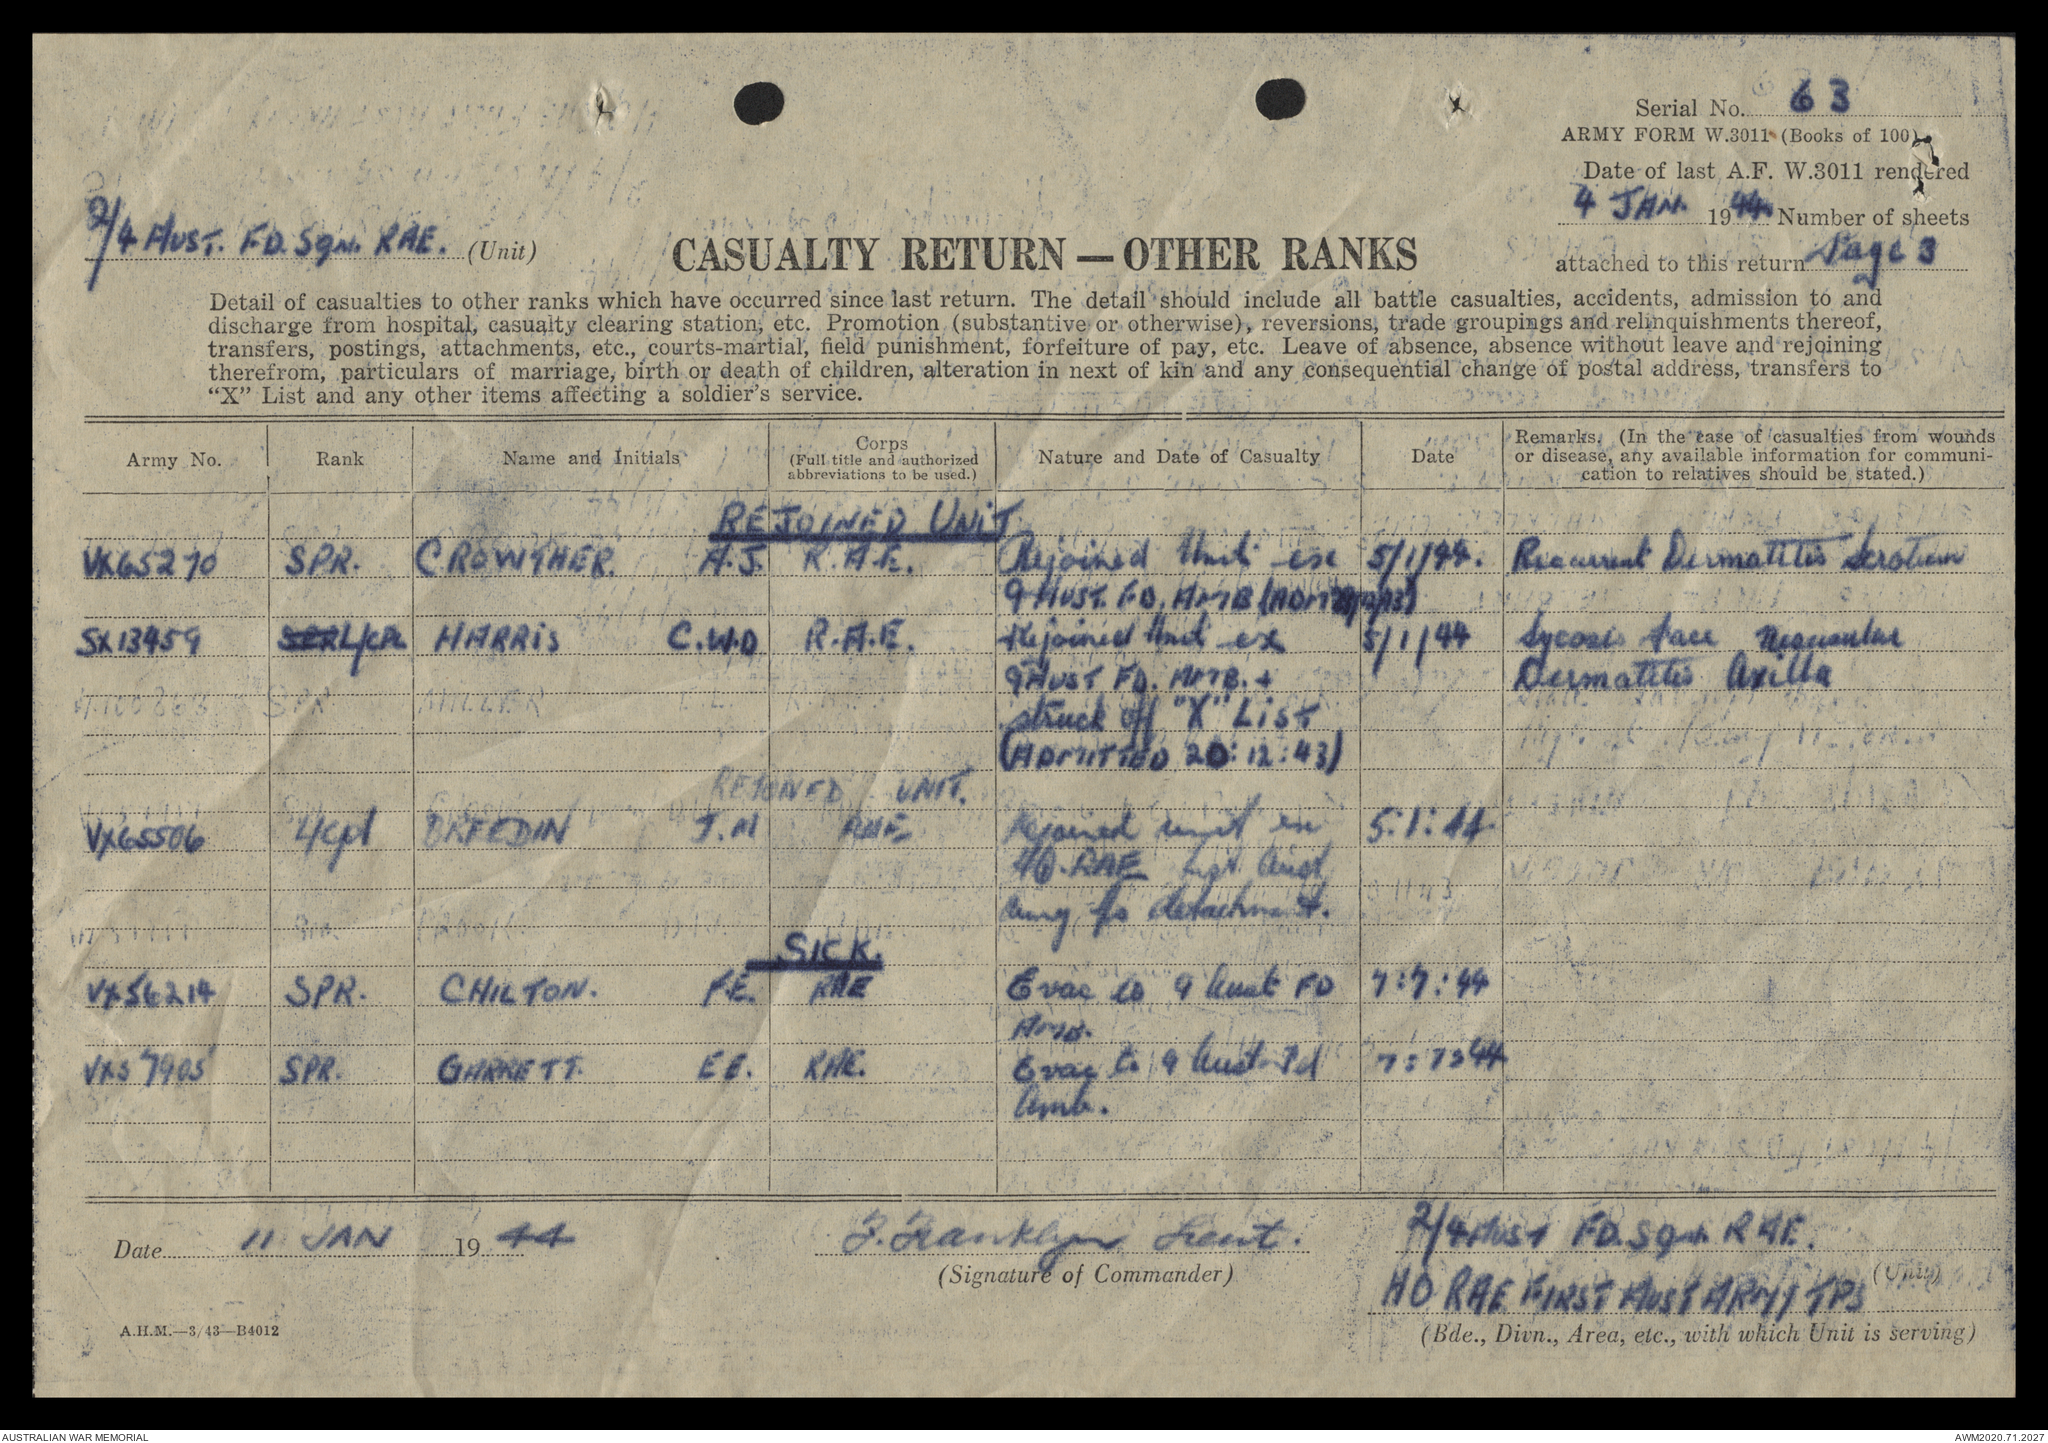 Serial No. 63
ARMY FORM W.3011 (Books of 100)
Date of last A.F. W.3011 rendered
4 JAN. 1944. Number of sheets
attached to this return Page 3
2/4 AUST. FD. Sqn. RAE. (Unit)
CASUALTY RETURN — OTHER RANKS
Detail of casualties to other ranks which have occurred since last return. The detail should include all battle casualties, accidents, admission to and
discharge from hospital, casualty clearing station, etc. Promotion (substantive or otherwise), reversions, trade groupings and relinquishments thereof,
transfers, postings, attachments, etc., courts-martial, field punishment, forfeiture of pay, etc. Leave of absence, absence without leave and rejoining
therefrom, particulars of marriage, birth or death of children, alteration in next of kin and any consequential change of postal address, transfers to
“X” List and any other items affecting a soldier's service.
Army No. Rank Name and Initials Corps (Full title and authorized abbreviations to be used.) Nature and Date of Casualty Date Remarks. (In the case of casualties from wounds or disease, any available information for communi-cation to relatives should be stated.)
REJOINED UNIT
VX65270 SPR. CROWTHER. A.J. R.A.E. Rejoined Unit ex 5/1/44. Recurrent Dermatitis Scrotum
9 AUST. FD. AMB
SX13459 L/CPL HARRIS C.W.D R.A.E. Rejoined Unit ex 5/1/44 Sycosis face
9 AUST FD. AMB. + Dermatitis Axilla
SPR MILLER
struck off "X" LIST
(ADMITTED 20:12:43)
REJOINED UNIT.
VX65506 L/Cpl J.M RAE Rejoined unit ex 5:1:44
HQ. RAE
detachment.
SICK.
VX56214 SPR. CHILTON. F.E. RAE Evac to 9 Aust FD 7:7:44
AMB.
VX57905 SPR. GARRETT. E E. RAE. Evac to 9 Aust Fd 7:7:44
Amb.
Date 11 JAN 1944 F. Franklyn Lieut. 2/4 AUST FD. Sqn. RAE.
(Signature of Commander) (Unit)
HQ RAE FIRST AUST ARMY TPS
A.H.M.—3/43—B4012 (Bde., Divn., Area, etc., with which Unit is serving)
AUSTRALIAN WAR MEMORIAL AWM2020.71.2027